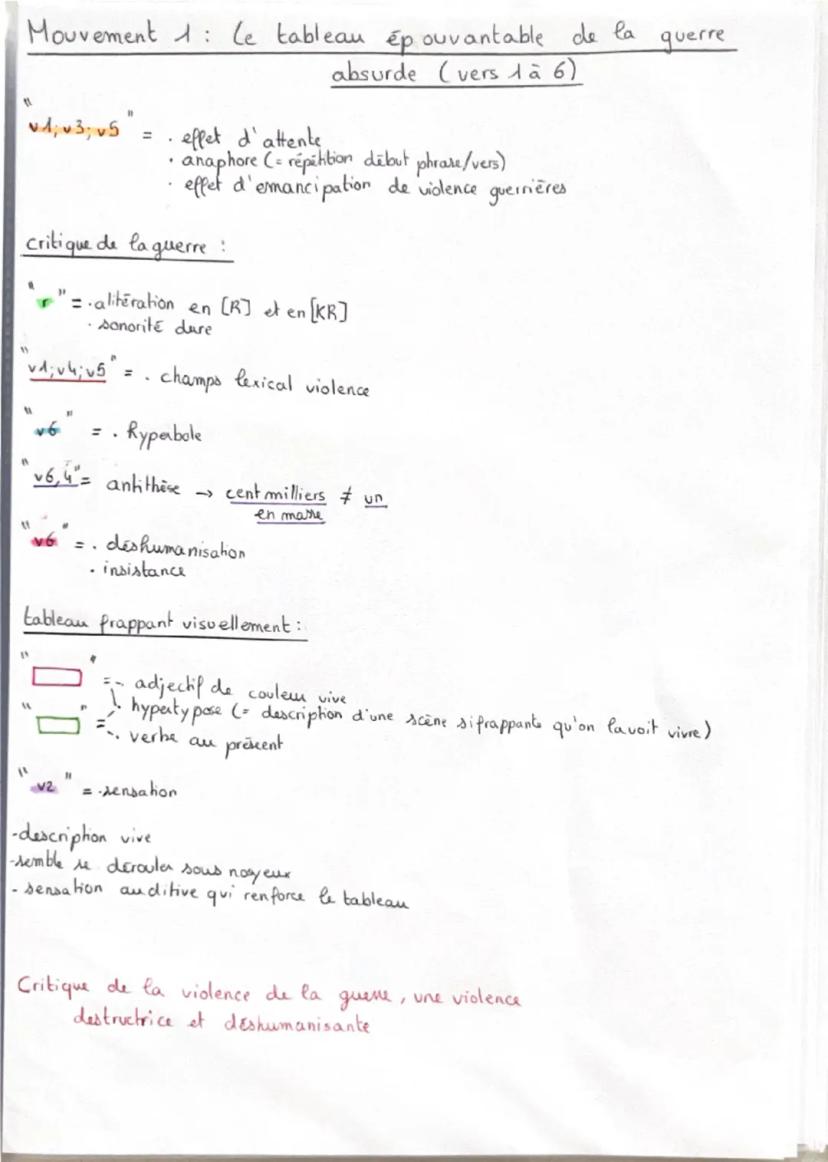 Mouvement 1 : Le tableau épouvantable de la guerre
absurde (vers 1 à 6)
"v1; v3; v5" = . effet d'attente
. anaphore (= répétition début phrase/vers)
. effet d'emancipation de violence guerrières
critique de la guerre :
"r" = . alitération en [R] et en [KR]
. sonorité dure
"v1; v4; v5" = . champs lexical violence
"v6" = . hyperbole
"v6,4" = antithèse → cent milliers ≠ un
en masse
"v6" = . déshumanisation
. insistance
tableau frappant visuellement :
" " = . adjectif de couleur vive
. hypertypose (= description d'une scène si frappante qu'on la voit vivre)
" " = . verbe au présent
"v2" = . sensation
-description vive
-semble se dérouler sous nos yeux
- sensation auditive qui renforce le tableau
Critique de la violence de la guerre, une violence
destructrice et déshumanisante